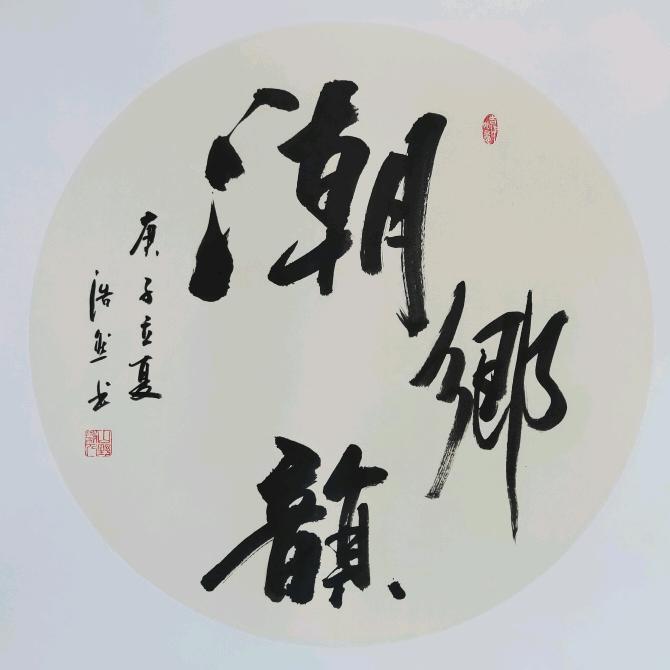 潮
鄉
韻
庚子立夏
浩然书